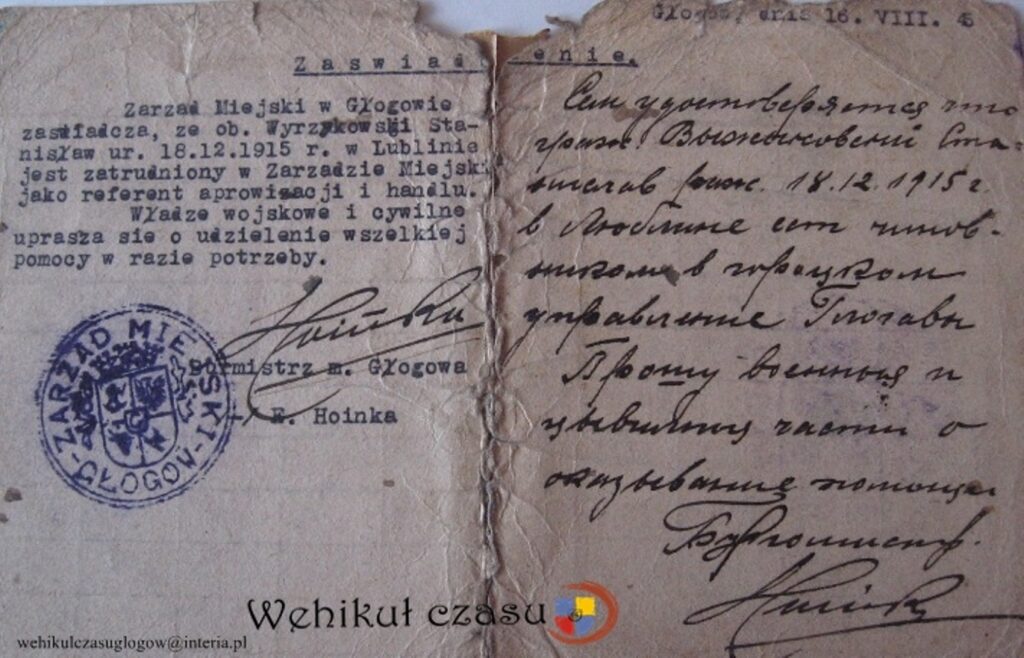 Głogow, dnia 16. VIII. 45
Zaswiad enie.
Zarzad Miejski w Głogowie
zaswiadcza, ze ob. Wyrzykowski Sta-
nisław ur. 18.12.1915 r. w Lublinie
jest zatrudniony w Zarzadzie Miejski
jako referent aprowizacji i handlu.
Władze wojskowe i cywilne
uprasza sie o udzielenie wszelkiej
pomocy w razie potrzeby.
Hoinka
Burmistrz m. Głogowa
E. Hoinka
-ZARZĄD MIEJSKI-
GŁOGÓW
Сем удостоверяется что
граж. Выжиковский Ста-
нислав рож. 18.12.1915 г.
в Люблине ест чинов-
ником в городском
управление Глогавы
Прошу военныя и
цывильныя части о
оказывание помощи
Бургомистр.
Hoinka
Wehikuł czasu
wehikulczasuglogow@interia.pl